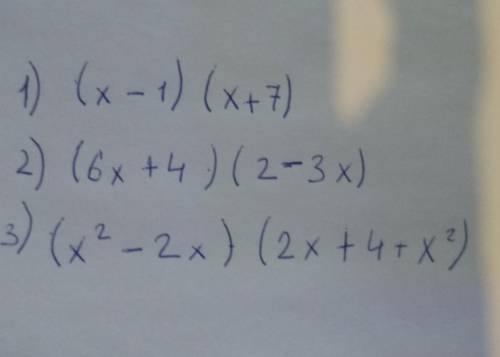 1) (x - 1) (x+7)
2) (6x +4) (2-3x)
3) (x² - 2x) (2x +4+x²)